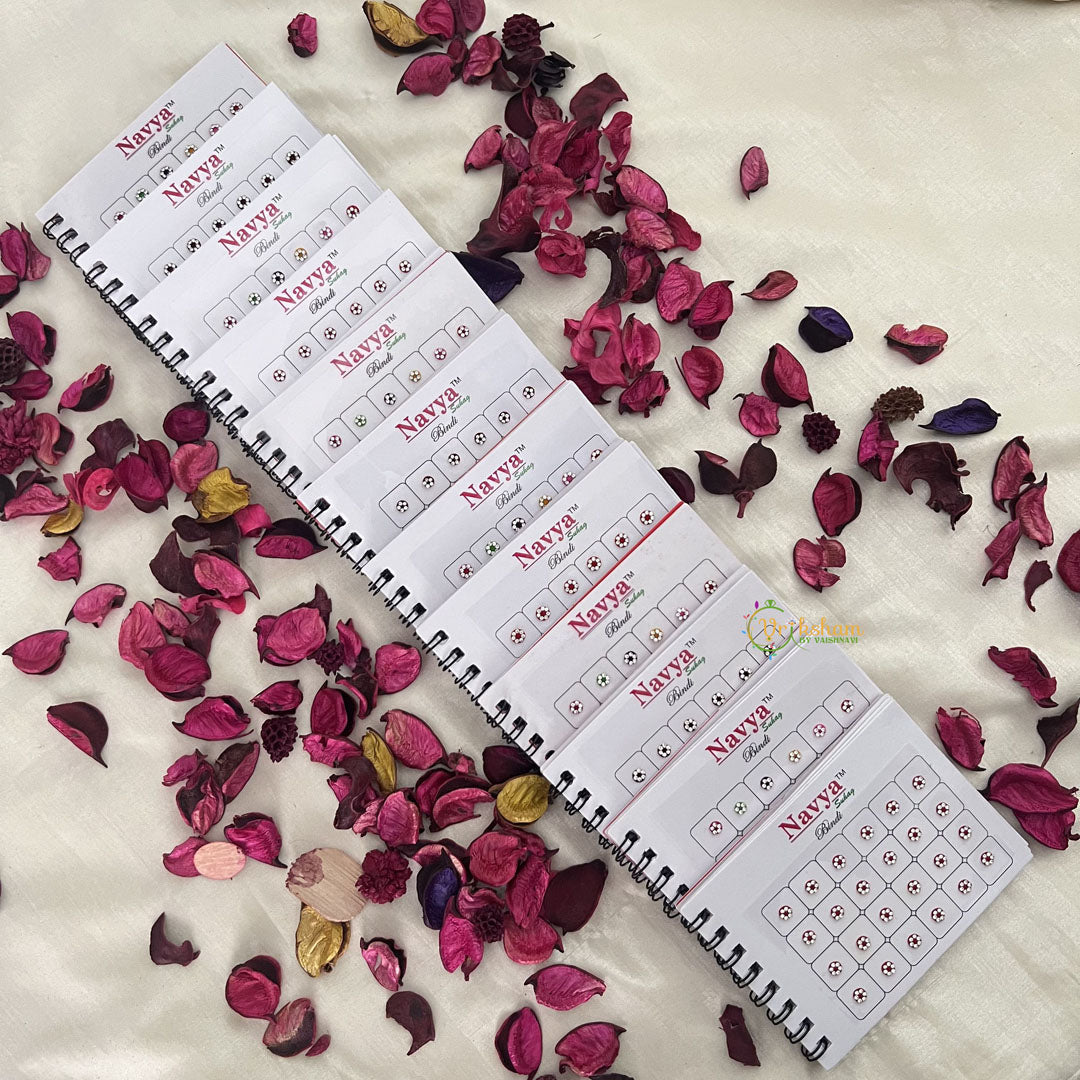 Navya™
Suhag
Bindi
Navya™
Suhag
Bindi
Navya™
Suhag
Bindi
Navya™
Suhag
Bindi
Navya™
Suhag
Bindi
Navya™
Suhag
Bindi
Navya™
Suhag
Bindi
Navya™
Suhag
Bindi
Navya™
Suhag
Bindi
Navya™
Bindi
Navya™
Suhag
Bindi
Navya™
Suhag
Bindi
Vrihsham
BY VAISHNAVI